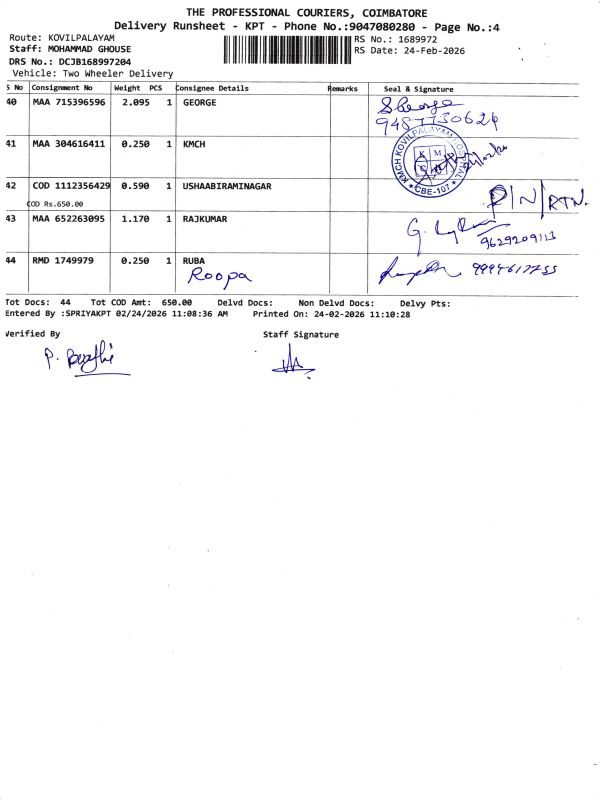 THE PROFESSIONAL COURIERS, COIMBATORE
Delivery Runsheet - KPT - Phone No.:9047080280 - Page No.:4
Route: KOVILPALAYAM RS No.: 1689972
Staff: MOHAMMAD GHOUSE RS Date: 24-Feb-2026
DRS No.: DCJB168997204
Vehicle: Two Wheeler Delivery
S No Consignment No Weight PCS Consignee Details Remarks Seal & Signature
40 MAA 715396596 2.095 1 GEORGE George
41 MAA 304616411 0.250 1 KMCH KMCH KOVILPALAYAM HOSPITAL CBE-107
42 COD 1112356429 0.590 1 USHAABIRAMINAGAR P/N/RTN.
COD Rs.650.00
43 MAA 652263095 1.170 1 RAJKUMAR
9629209113
44 RMD 1749979 0.250 1 RUBA
Roopa
Tot Docs: 44 Tot COD Amt: 650.00 Delvd Docs: Non Delvd Docs: Delvy Pts:
Entered By :SPRIYAKPT 02/24/2026 11:08:36 AM Printed On: 24-02-2026 11:10:28
Verified By Staff Signature